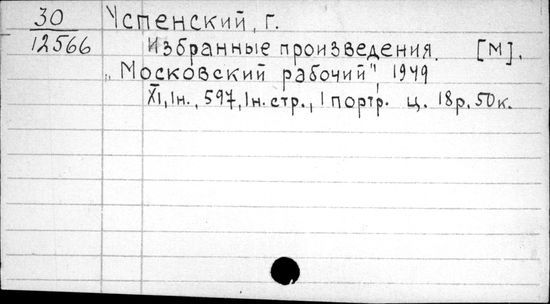 30 Успенский, г.
12566 Избранные произведения. [М].
„Московский рабочий", 1949
XI, 1н., 597, 1н. стр., 1 портр. ц. 18р. 50к.